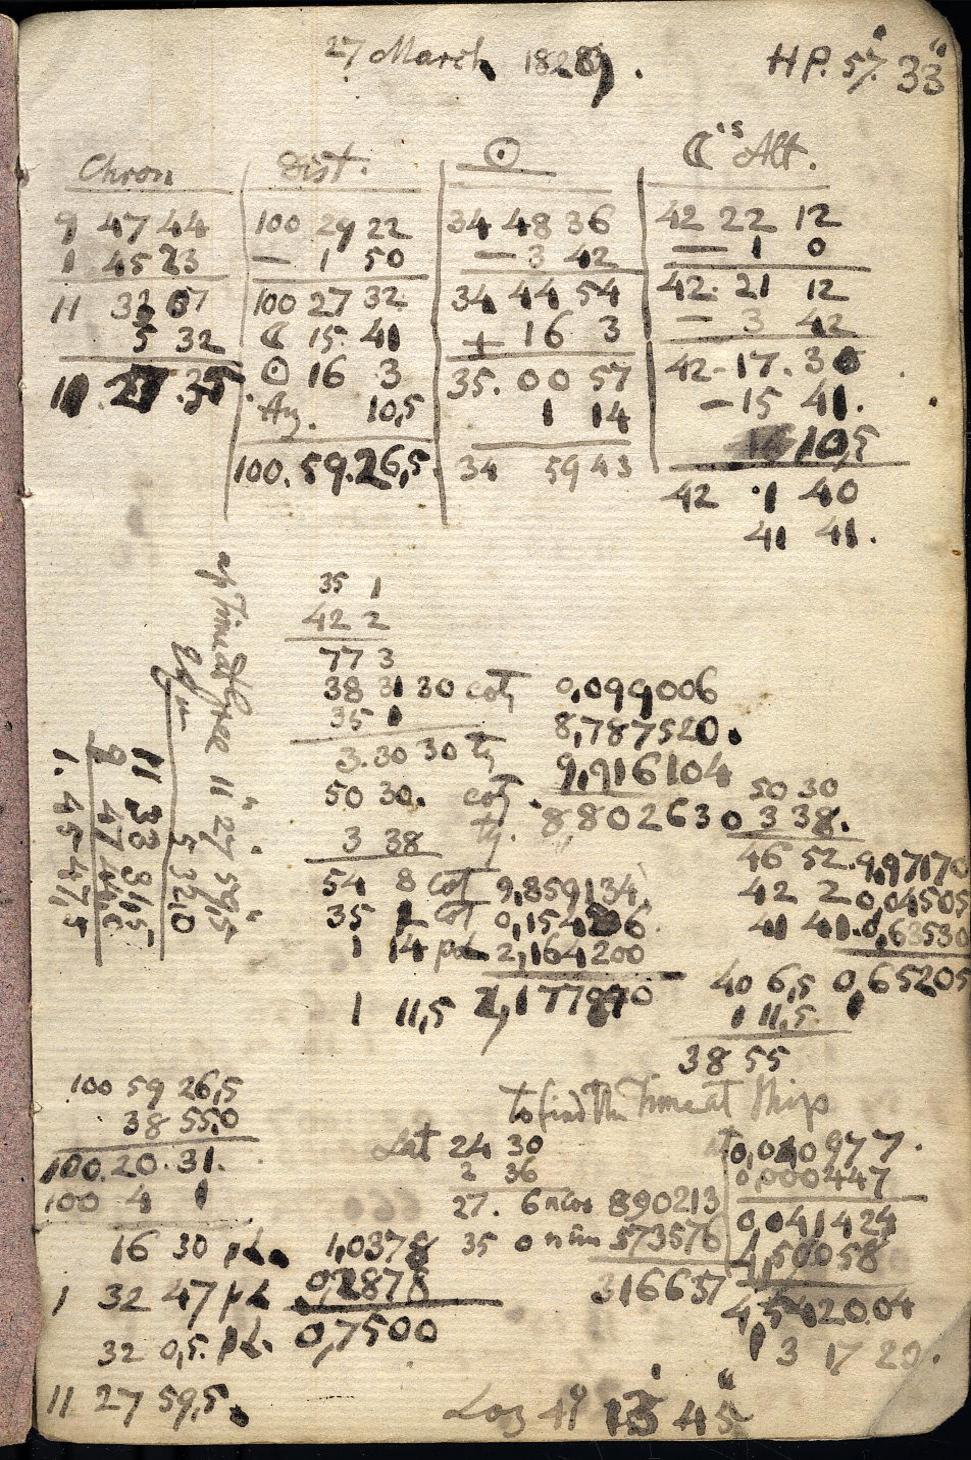 27 March 1828. HP. 57' 33"
Chron Dist. ☉ ☾'s Alt.
9 47 44 100 29 22 34 48 36 42 22 12
1 45 23 — 1 50 — 3 42 — 1 0
11 33 07 100 27 32 34 44 54 42. 21 12
5 32 ☾ 15. 41 + 16 3 — 3 42
11. 27. 35 ☉ 16 3 35. 00 57 42-17. 30
10,5 1 14 —15 41.
100. 59. 26,5 34 59 43 10,5
42 1 40
41 41.
35 1
42 2
77 3
38 31 30 cot 0,099006
35 1 8,787520.
3. 30 30 tg 9,916104
50 30. cot 8802630
3 38 tg.
50 30
3 38.
46 52. 9,97170
54 8 Cot 9,859134.
42 2 0,04505
35 1 Cot
41 41. 0,63530
1 14 pl 2,164200
40 6,5 0,65205
1 11,5
1 11,5
38 55
ap Time at Gree 11 27 59,5
5 32,0
11 33 31,5
9 47 44,0
1. 45 47,5
100 59 26,5
38 55.0
100. 20. 31.
100 4 1
16 30 pl.
1 32 47 pl
32 0,5. pl.
11 27 59,5.
1,0378
0,2878
0,7500
to find the Time at Ship
Lat 24 30
2 36
27. 6 n cos 890213
35 0 n sin 573576
316637
0,040977.
0,000447
0,041424
4,50058
4,542004
3 17 20.
Log 41° 13' 45"